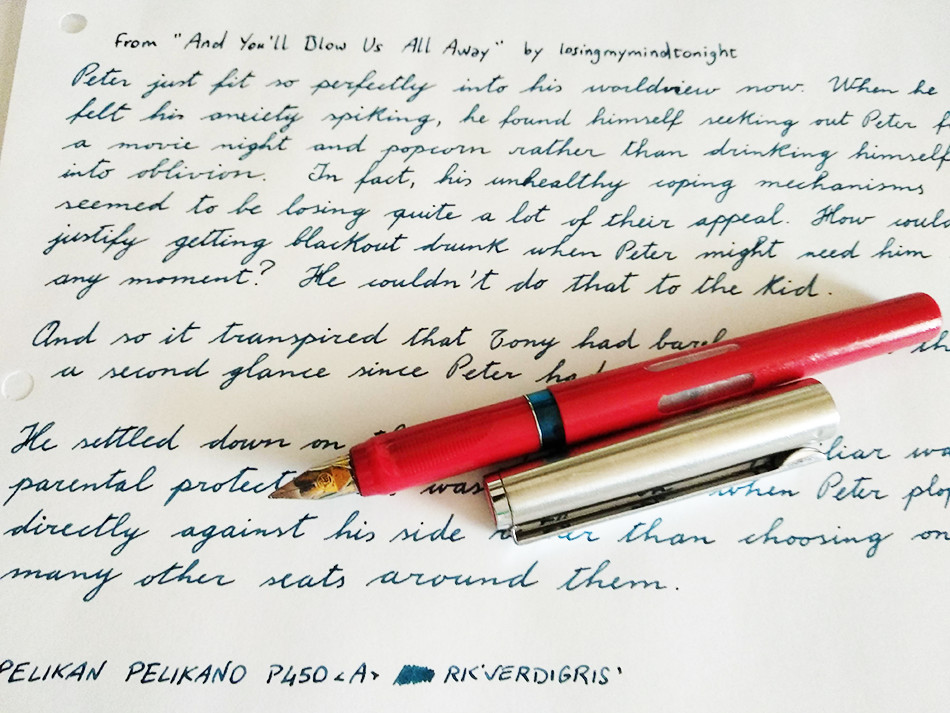 From "And You'll Blow Us All Away" by losingmymindtonight
Peter just fit so perfectly into his worldview now. When he
felt his anxiety spiking, he found himself seeking out Peter
a movie night and popcorn rather than drinking himself
into oblivion. In fact, his unhealthy coping mechanisms
seemed to be losing quite a lot of their appeal. How
justify getting blackout drunk when Peter might need him
any moment? He couldn't do that to the kid.
And so it transpired that Tony had
a second glance since Peter
He settled down on
parental was when Peter
directly against his side than choosing on
many other seats around them.
PELIKAN PELIKANO P450 <A> RK 'VERDIGRIS'